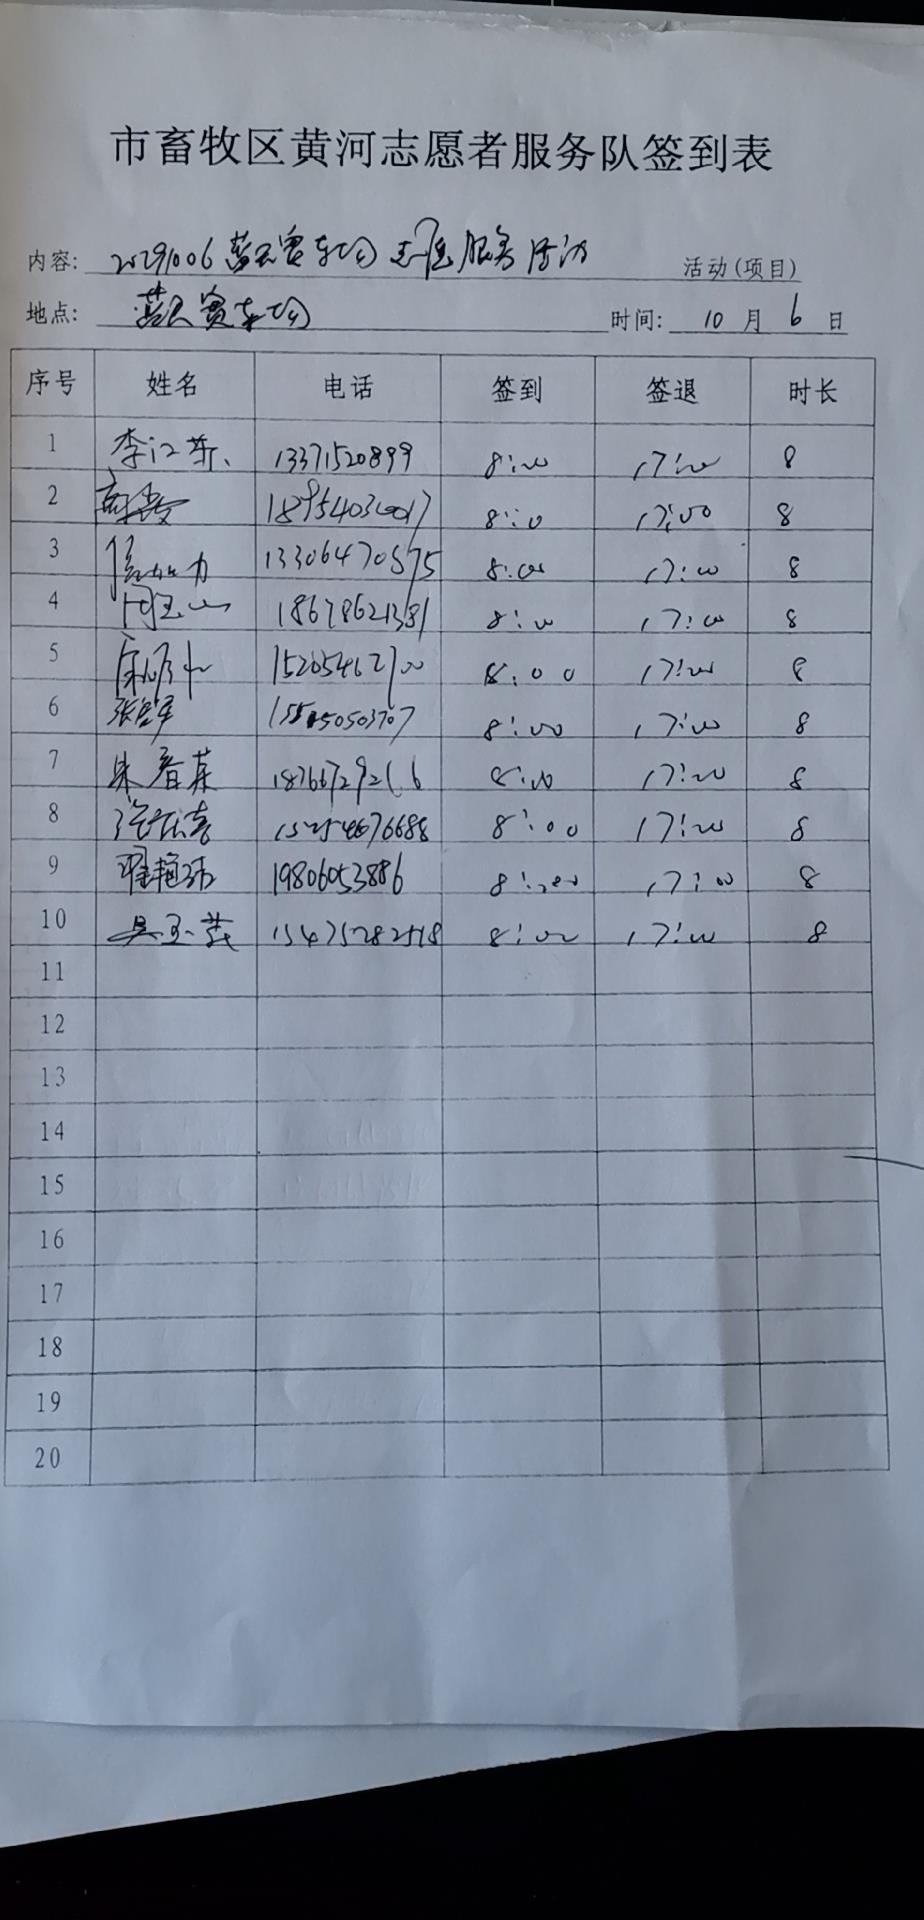 市畜牧区黄河志愿者服务队签到表
内容: 蓝天赛车场志愿服务活动 活动(项目)
地点: 蓝天赛车场 时间: 10 月 6 日
序号 姓名 电话 签到 签退 时长
1 李江 13371520899 8:00 17:00 8
2 18954030017 8:00 17:00 8
3 13306470575 8:00 17:00 8
4 周玉山 18678621381 8:00 17:00 8
5 15205462700 8:00 17:00 8
6 张 8:00 17:00 8
7 朱春英 8:00 17:00 8
8 15254676688 8:00 17:00 8
9 翟艳 19806053886 8:00 17:00 8
10 吴玉 8:00 17:00 8
11
12
13
14
15
16
17
18
19
20